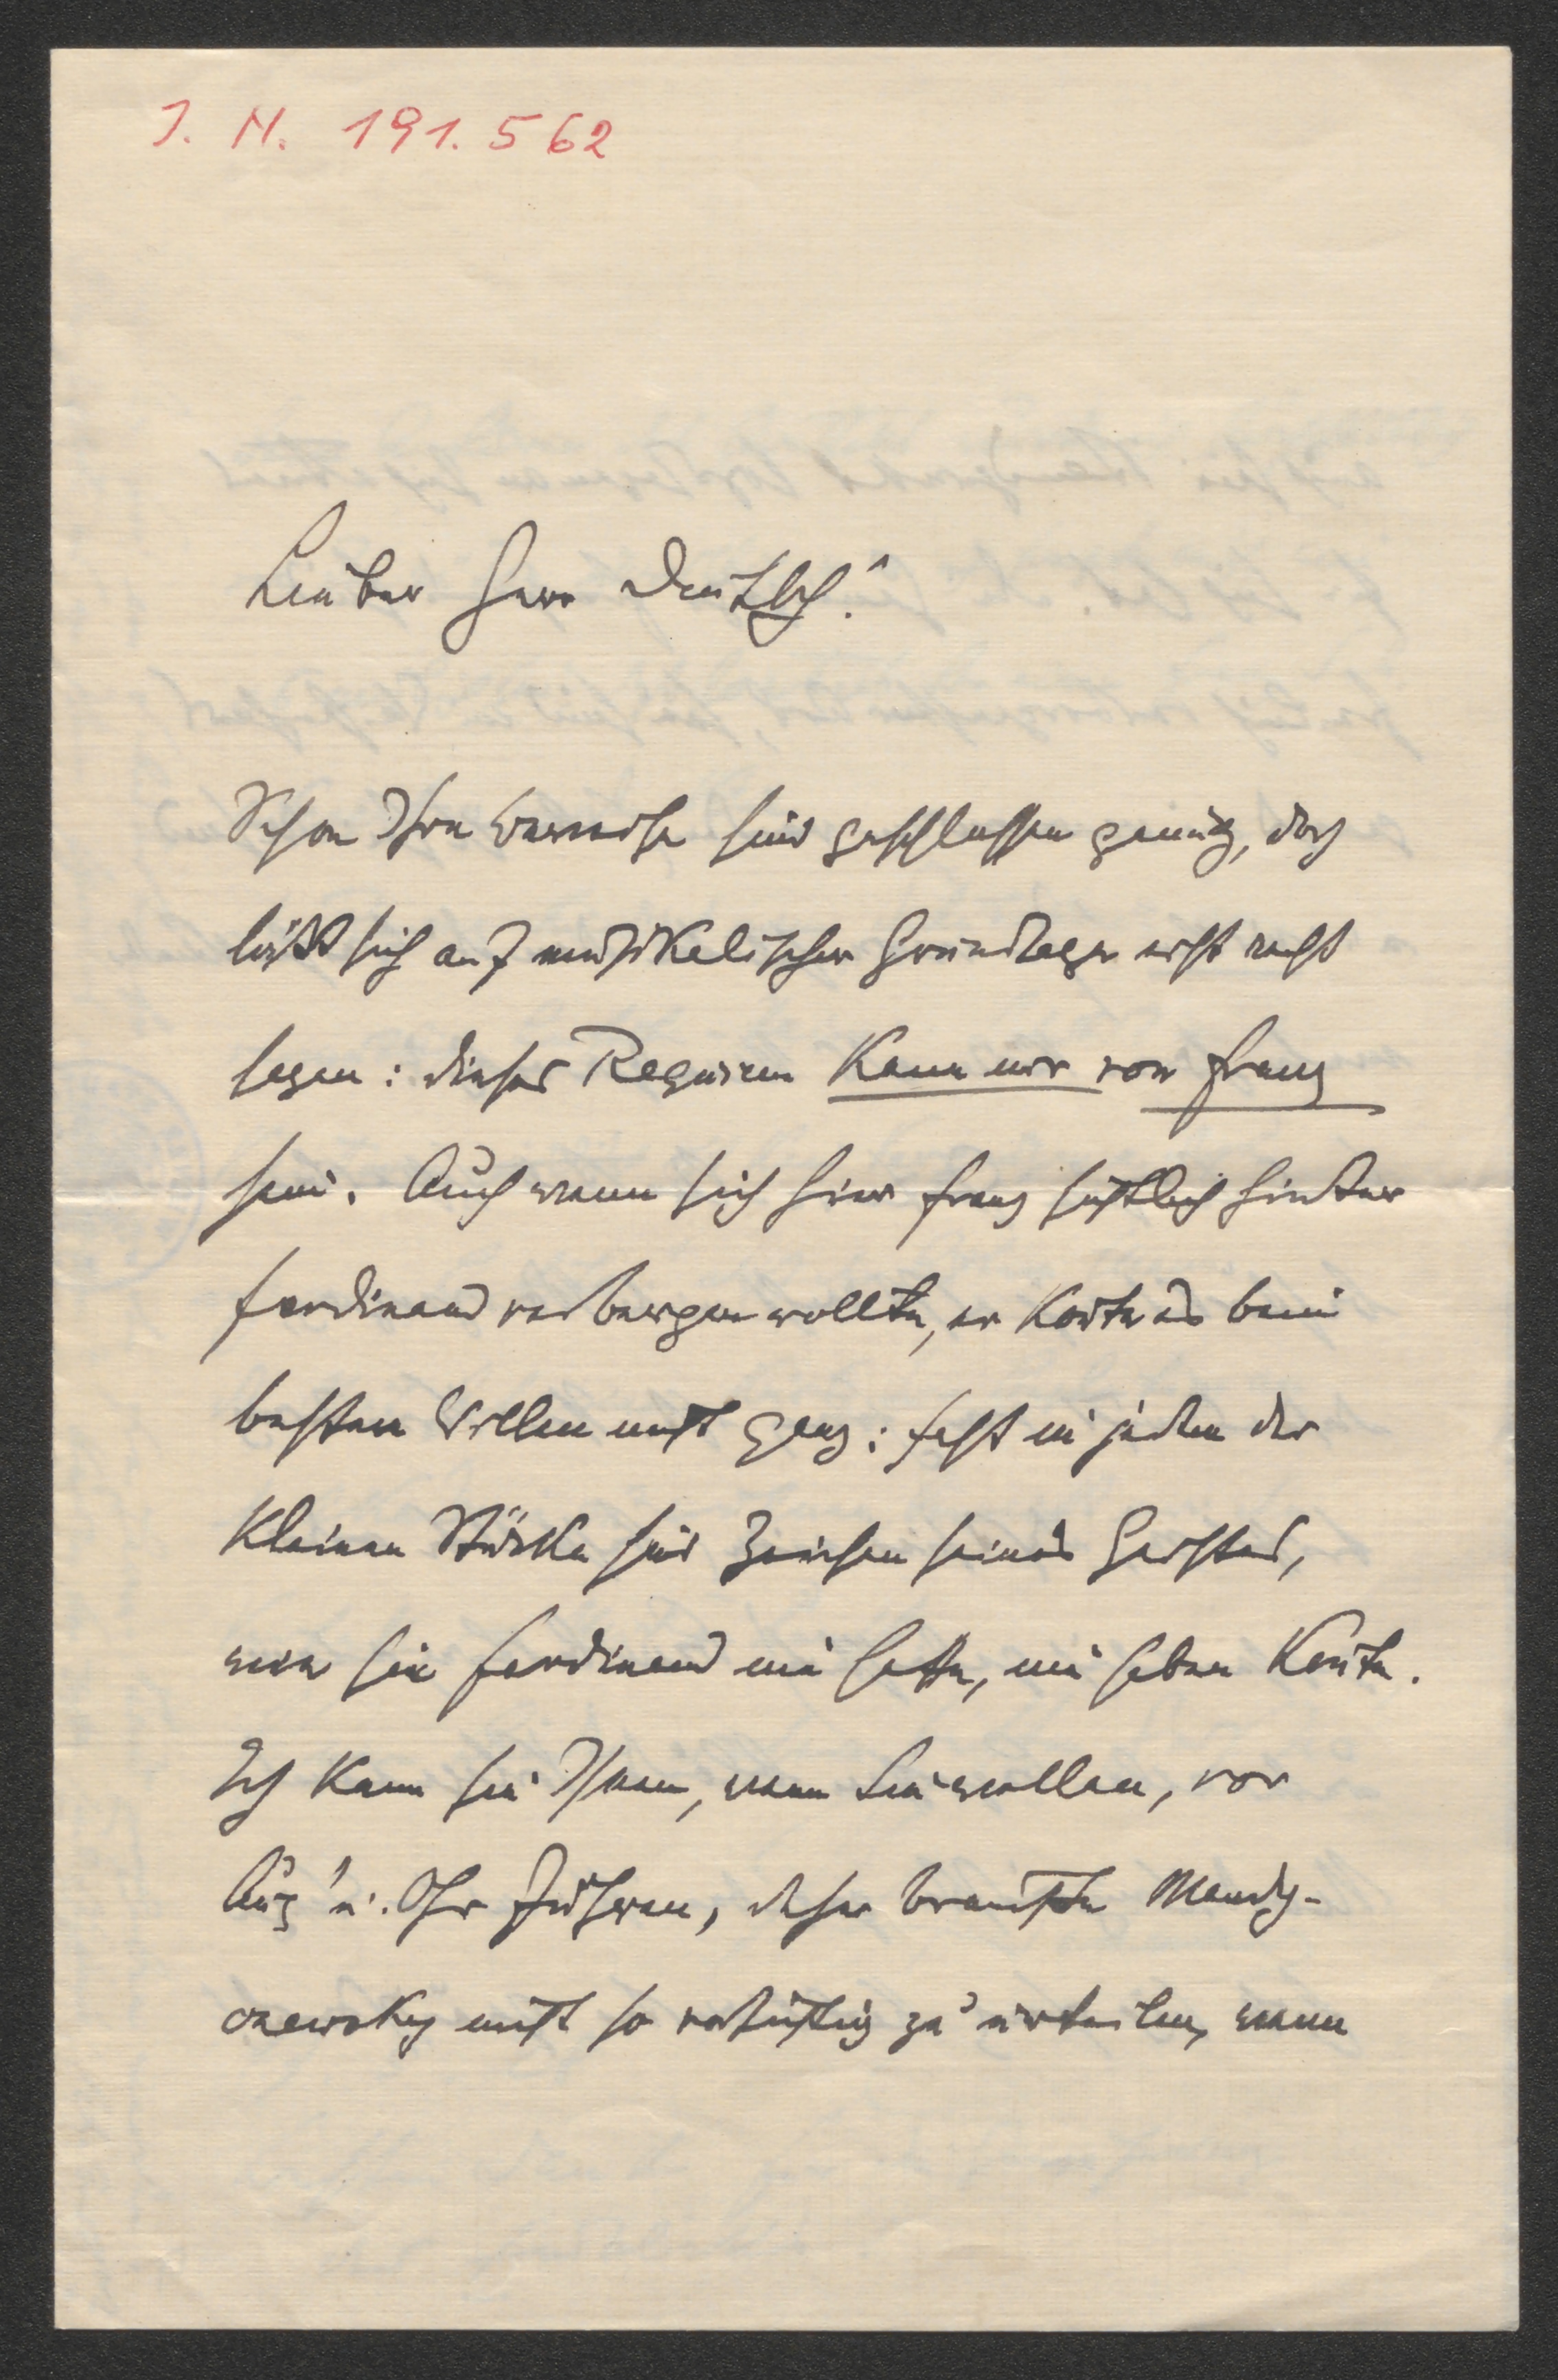 I. N. 191.562
Lieber Herr Deutsch!
Schon Ihre Beweise sind geschlossen genug, doch
läßt sich auf musikalischer Grundlage erst recht
sagen: dieses Requiem kann nur von Franz
sein. Auch wenn sich hier Franz sichtlich hinter
Ferdinand verbergen wollte, er konnte es beim
besten Willen nicht ganz: fast in jedem der
kleinen Stücke sind Zeichen seines Geistes,
wie sie Ferdinand nie hatte, nie haben konnte.
Ich kann sie Ihnen, wenn Sie wollen, vor
Aug' u. Ohr führen, daher brauchte Mandy-
czewsky nicht so vorsichtig zu urteilen, wenn